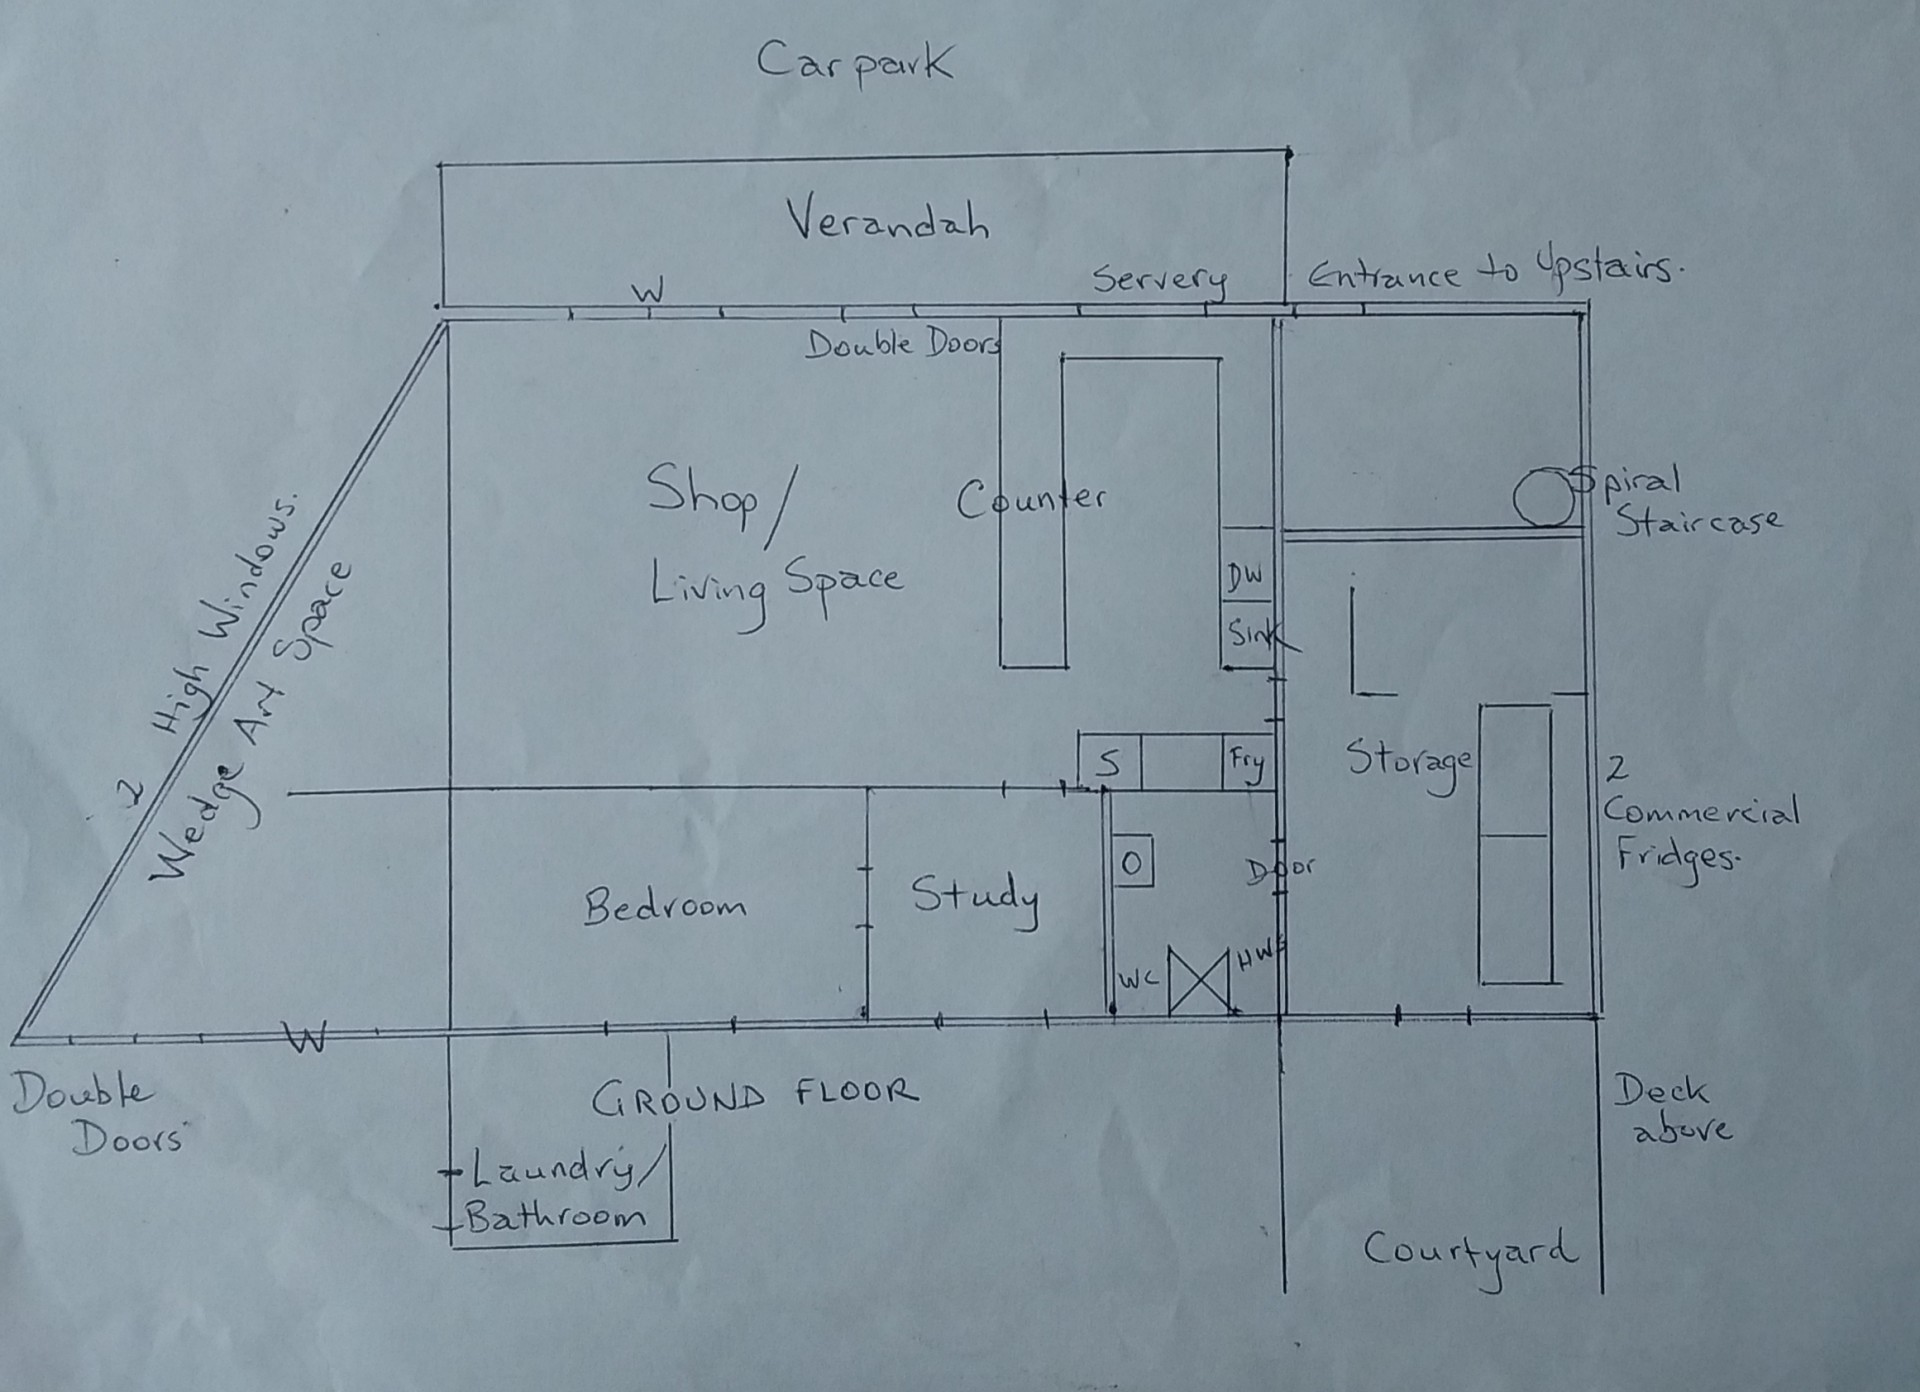 Carpark
Verandah
W
Servery
Entrance to Upstairs.
Double Doors
Shop/
Living Space
Counter
Spiral
Staircase
2 High Windows.
Wedge Art Space
DW
Sink
S
Fry
Storage
2
Commercial
Fridges.
Bedroom
Study
O
Door
WC
HWS
W
Double
Doors
GROUND FLOOR
Laundry/
Bathroom
Deck
above
Courtyard